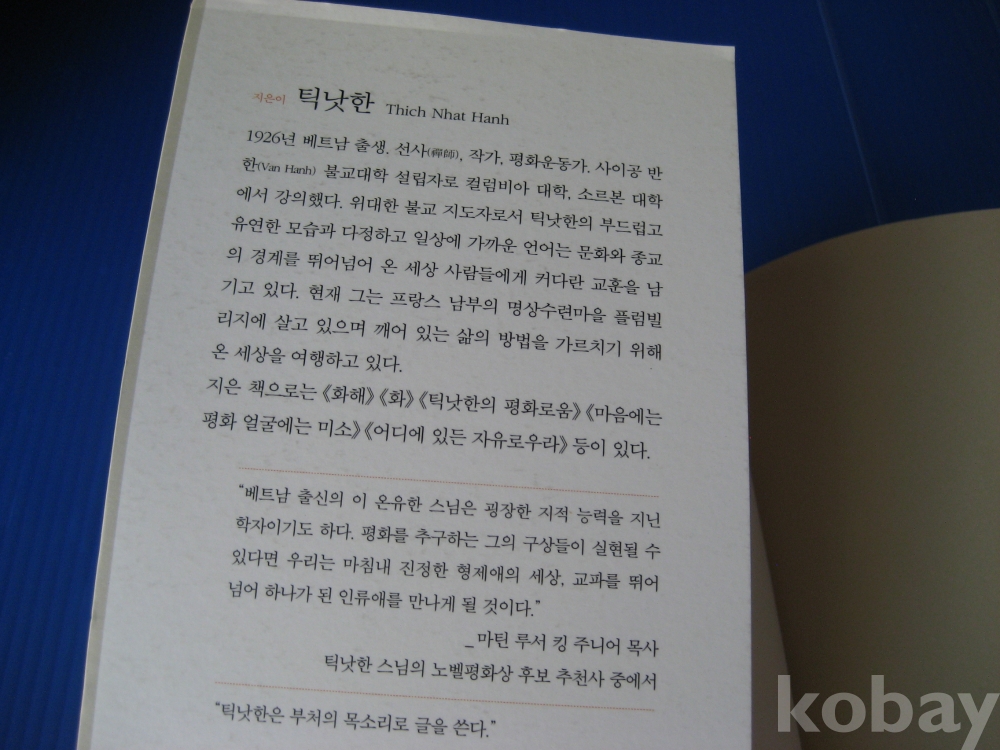 지은이 틱낫한 Thich Nhat Hanh
1926년 베트남 출생. 선사(禪師), 작가, 평화운동가. 사이공 반
한(Van Hanh) 불교대학 설립자로 컬럼비아 대학, 소르본 대학
에서 강의했다. 위대한 불교 지도자로서 틱낫한의 부드럽고
유연한 모습과 다정하고 일상에 가까운 언어는 문화와 종교
의 경계를 뛰어넘어 온 세상 사람들에게 커다란 교훈을 남
기고 있다. 현재 그는 프랑스 남부의 명상수련마을 플럼빌
리지에 살고 있으며 깨어 있는 삶의 방법을 가르치기 위해
온 세상을 여행하고 있다.
지은 책으로는 《화해》《화》《틱낫한의 평화로움》《마음에는
평화 얼굴에는 미소》《어디에 있든 자유로우라》 등이 있다.
“베트남 출신의 이 온유한 스님은 굉장한 지적 능력을 지닌
학자이기도 하다. 평화를 추구하는 그의 구상들이 실현될 수
있다면 우리는 마침내 진정한 형제애의 세상, 교파를 뛰어
넘어 하나가 된 인류애를 만나게 될 것이다.”
_마틴 루서 킹 주니어 목사
틱낫한 스님의 노벨평화상 후보 추천사 중에서
“틱낫한은 부처의 목소리로 글을 쓴다.”
kobay